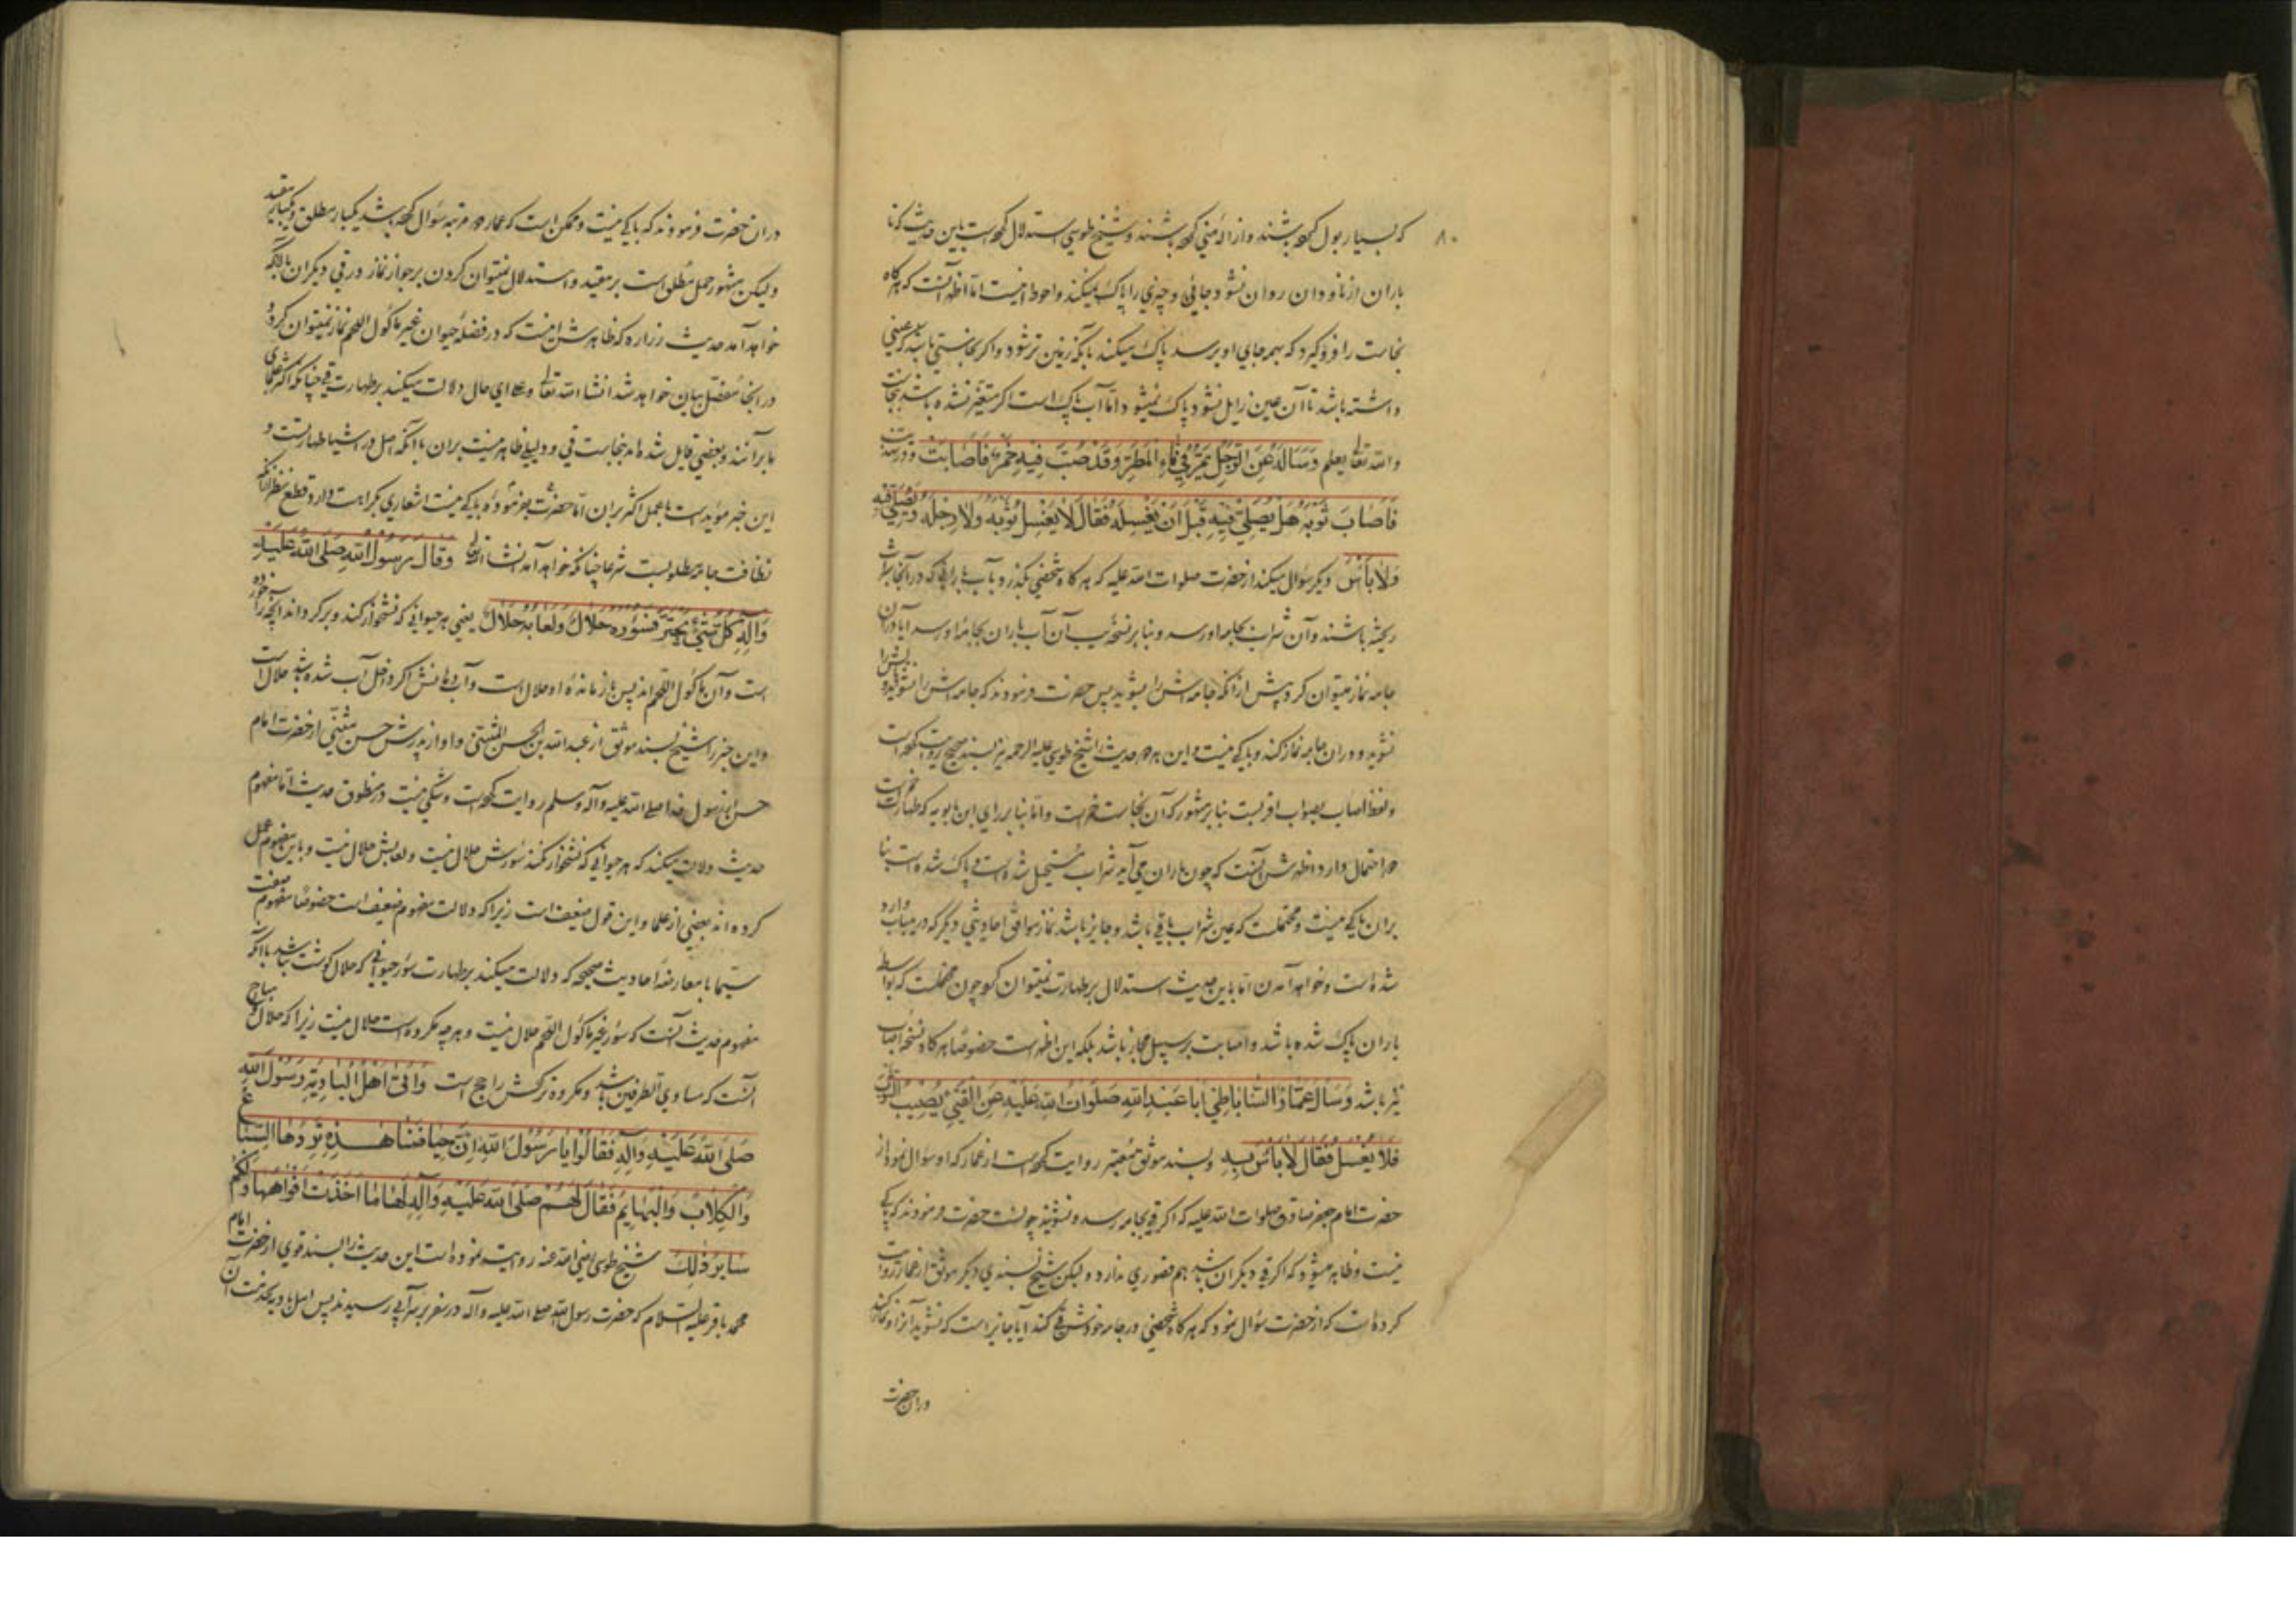 ۸۰
که بسیار بول کرده باشند و ازاله منی کرده باشند و شیخ طوسی استدلال کرده است باین حدیث که تا
باران از ناودان روان نشود جائی و چیزی را پاک نمیکند و احوط اینست اما اظهر آنست که هرگاه
نجاست را فرو گیرد که بهمه جای او برسد پاک میکند با آنکه زمین تر شود و اگر نجاستی باشد که عینی
داشته باشد تا آن عین زایل نشود پاک نمیشود اما آب پاک است اگر متغیر نشده باشد بنجاست
والله تعالی یعلم وَسَأَلَهُ عَنِ الرَّجُلِ یَمُرُّ فِی مَاءِ المَطَرِ وَقَدْ صُبَّ فِیهِ خَمْرٌ فَأَصَابَتْ
فَأَصَابَ ثَوْبَهُ هَلْ یُصَلِّی فِیهِ قَبْلَ أَنْ یَغْسِلَهُ فَقَالَ لَا یَغْسِلُ ثَوْبَهُ وَلَا رِجْلَهُ وَیُصَلِّی فِیهِ
وَلَا بَأْسَ دیگر سؤال میکند از حضرت صلوات الله علیه که هرگاه شخصی بگذرد بآب بارانی که در آنجا شراب
ریخته باشند و آن شراب بجامه او رسد و بنا بر نسخه یب آن آب باران بجامه او رسد آیا در آن
جامه نماز میتوان کرد پیش از آنکه جامه اش را بشوید پس حضرت فرمودند که جامه اش را نشوید و پایش را
نشوید و در آن جامه نماز کند و باکی نیست و این هر دو حدیث را شیخ طوسی علیه الرحمه نیز بسند صحیح روایت کرده است
و لفظ اصاب بصواب اقربست بنا بر مشهور که آن نجاست خمر است و اما بنا بر رای ابن بابویه که طهارت خمر است
دو احتمال دارد اظهرش آنست که چون باران می آید شراب مستحیل شده است و پاک شده است بنا
بر آن باکی نیست و محتملست که عین شراب باقی باشد و جایز باشد نماز موافق احادیثی دیگر که در میباب وارد
شده است و خواهد آمدن اما باین حدیث استدلال بر طهارت نمیتوان کرد چون محتملست که بواسطه
باران پاک شده باشد و اصابت بر سبیل مجاز باشد بلکه این اظهر است خصوصا هرگاه نسخه اصاب
نیز باشد وَسَأَلَ عَمَّارٌ السَّابَاطِیُّ أَبَا عَبْدِ اللهِ صَلَوَاتُ اللهِ عَلَیْهِ عَنِ الْقَیْءِ یُصِیبُ الثَّوْبَ
فَلَا یُغْسَلُ فَقَالَ لَا بَأْسَ بِهِ و بسند موثق معتبر روایت کرده است از عمار که او سؤال نمود از
حضرت امام جعفر صادق صلوات الله علیه که اگر قی بجامه رسد و نشویند چونست حضرت فرمودند که باکی
نیست و ظاهر میشود که اگر قی دیگران باشد هم قصوری ندارد و لیکن شیخ بسندی دیگر موثق از عمار روایت
کرده است که از حضرت سؤال نمود که هرگاه شخصی در جامه خودش قی کند آیا جایز است که نشوید آنرا و نماز کند
در آن حضرت
در آن حضرت فرمودند که باکی نیست و ممکن است که عمار دو مرتبه سؤال کرده باشد یکبار مطلق و یکبار مقید
و لیکن مشهور حمل مطلق است بر مقید و استدلال نمیتوان کردن بر جواز نماز در قی دیگران با آنکه
خواهد آمد حدیث زراره که ظاهرش اینست که در فضله حیوان غیر ماکول اللحم نماز نمیتوان کرد و
در آنجا مفصل بیان خواهد شد انشاء الله تعالی و علی ای حال دلالت میکند بر طهارت قی چنانکه اکثر علمای
ما بر آنند و بعضی قایل شده اند بنجاست قی و دلیلی ظاهر نیست بر آن با آنکه اصل در اشیا طهارتست و
این خبر مؤید است با عمل اکثر بر آن اما حضرت بفرموده باکی نیست اشعاری بکراهت دارد و قطع نظر از آنکه
نظافت جامه مطلوبست شرعا چنانکه خواهد آمد انشاء الله تعالی وَقَالَ رَسُولُ اللهِ صَلَّی اللهُ عَلَیْهِ
وَآلِهِ کُلُّ شَیْءٍ یَجْتَرُّ فَسُؤْرُهُ حَلَالٌ وَلُعَابُهُ حَلَالٌ یعنی هر حیوانی که نشخوار کند و برگرداند آنچه را خورده
است و آن ماکول اللحم اند پس باز مانده او حلال است و آب دهانش اگر داخل آب شده باشد حلال است
و این خبر را شیخ بسند موثق از عبد الله بن الحسن المثنی و او از پدرش حسن مثنی از حضرت امام
حسن از رسول خدا صلی الله علیه و آله و سلم روایت کرده است و شکی نیست در منطوق حدیث اما مفهوم
حدیث دلالت میکند که هر حیوانی که نشخوار نکند سؤرش حلال نیست و لعابش حلال نیست و باین مفهوم عمل
کرده اند بعضی از علما و این قول ضعیف است زیرا که دلالت مفهوم ضعیف است خصوصا مفهوم صفت
سیما با معارضه احادیث صحیحه که دلالت میکند بر طهارت سؤر حیوانی که حلال گوشت نباشد با آنکه
مفهوم حدیث آنست که سؤر غیر ماکول اللحم حلال نیست و هر چه مکروه است حلال نیست زیرا که حلال مباح
آنست که مساوی الطرفین باشد و مکروه ترکش راجح است وَأَتَی أَهْلُ الْبَادِیَةِ رَسُولَ اللهِ
صَلَّی اللهُ عَلَیْهِ وَآلِهِ فَقَالُوا یَا رَسُولَ اللهِ إِنَّ حِیَاضَنَا هٰذِهِ تَرِدُهَا السِّبَاعُ
وَالْکِلَابُ وَالْبَهَایِمُ فَقَالَ لَهُمْ صَلَّی اللهُ عَلَیْهِ وَآلِهِ لَهَا مَا أَخَذَتْ أَفْوَاهُهَا وَلَکُمْ
سَایِرُ ذٰلِکَ شیخ طوسی رضی الله عنه روایت نموده است این حدیث را بسند قوی از حضرت امام
محمد باقر علیه السلام که حضرت رسول الله صلی الله علیه و آله در سفر بر سر آبی رسیدند پس اهل بادیه بخدمت آن